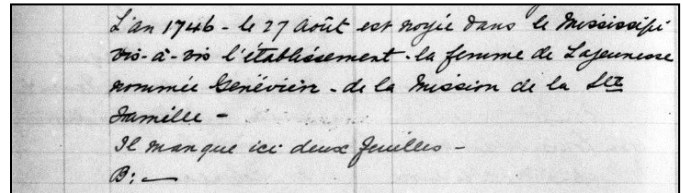 L'an 1746 - le 27 Août est noyée dans le Mississipi
vis-à-vis l'établissement - la femme de Lajeunesse
nommée Genéviève - de la Mission de la Ste
Famille -
Il manque ici deux feuilles -
B: —